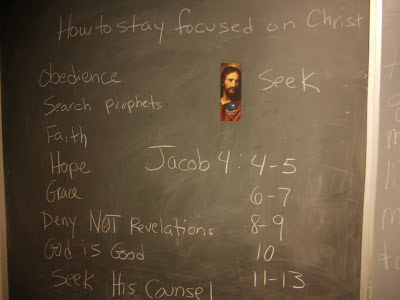 How to stay focused on Christ
Obedience
Seek
Search prophets
Faith
Hope Jacob 4: 4-5
Grace 6-7
Deny NOT Revelations 8-9
God is Good 10
Seek His Counsel 11-13